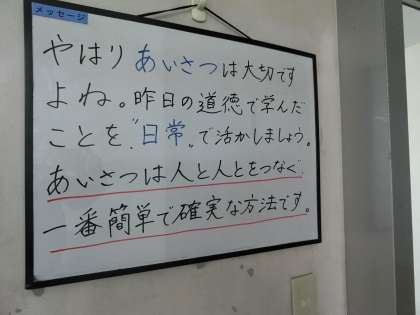 メッセージ
やはりあいさつは大切です
よね。昨日の道徳で学んだ
ことを"日常"で活かしましょう。
あいさつは人と人とをつなぐ
一番簡単で確実な方法です。